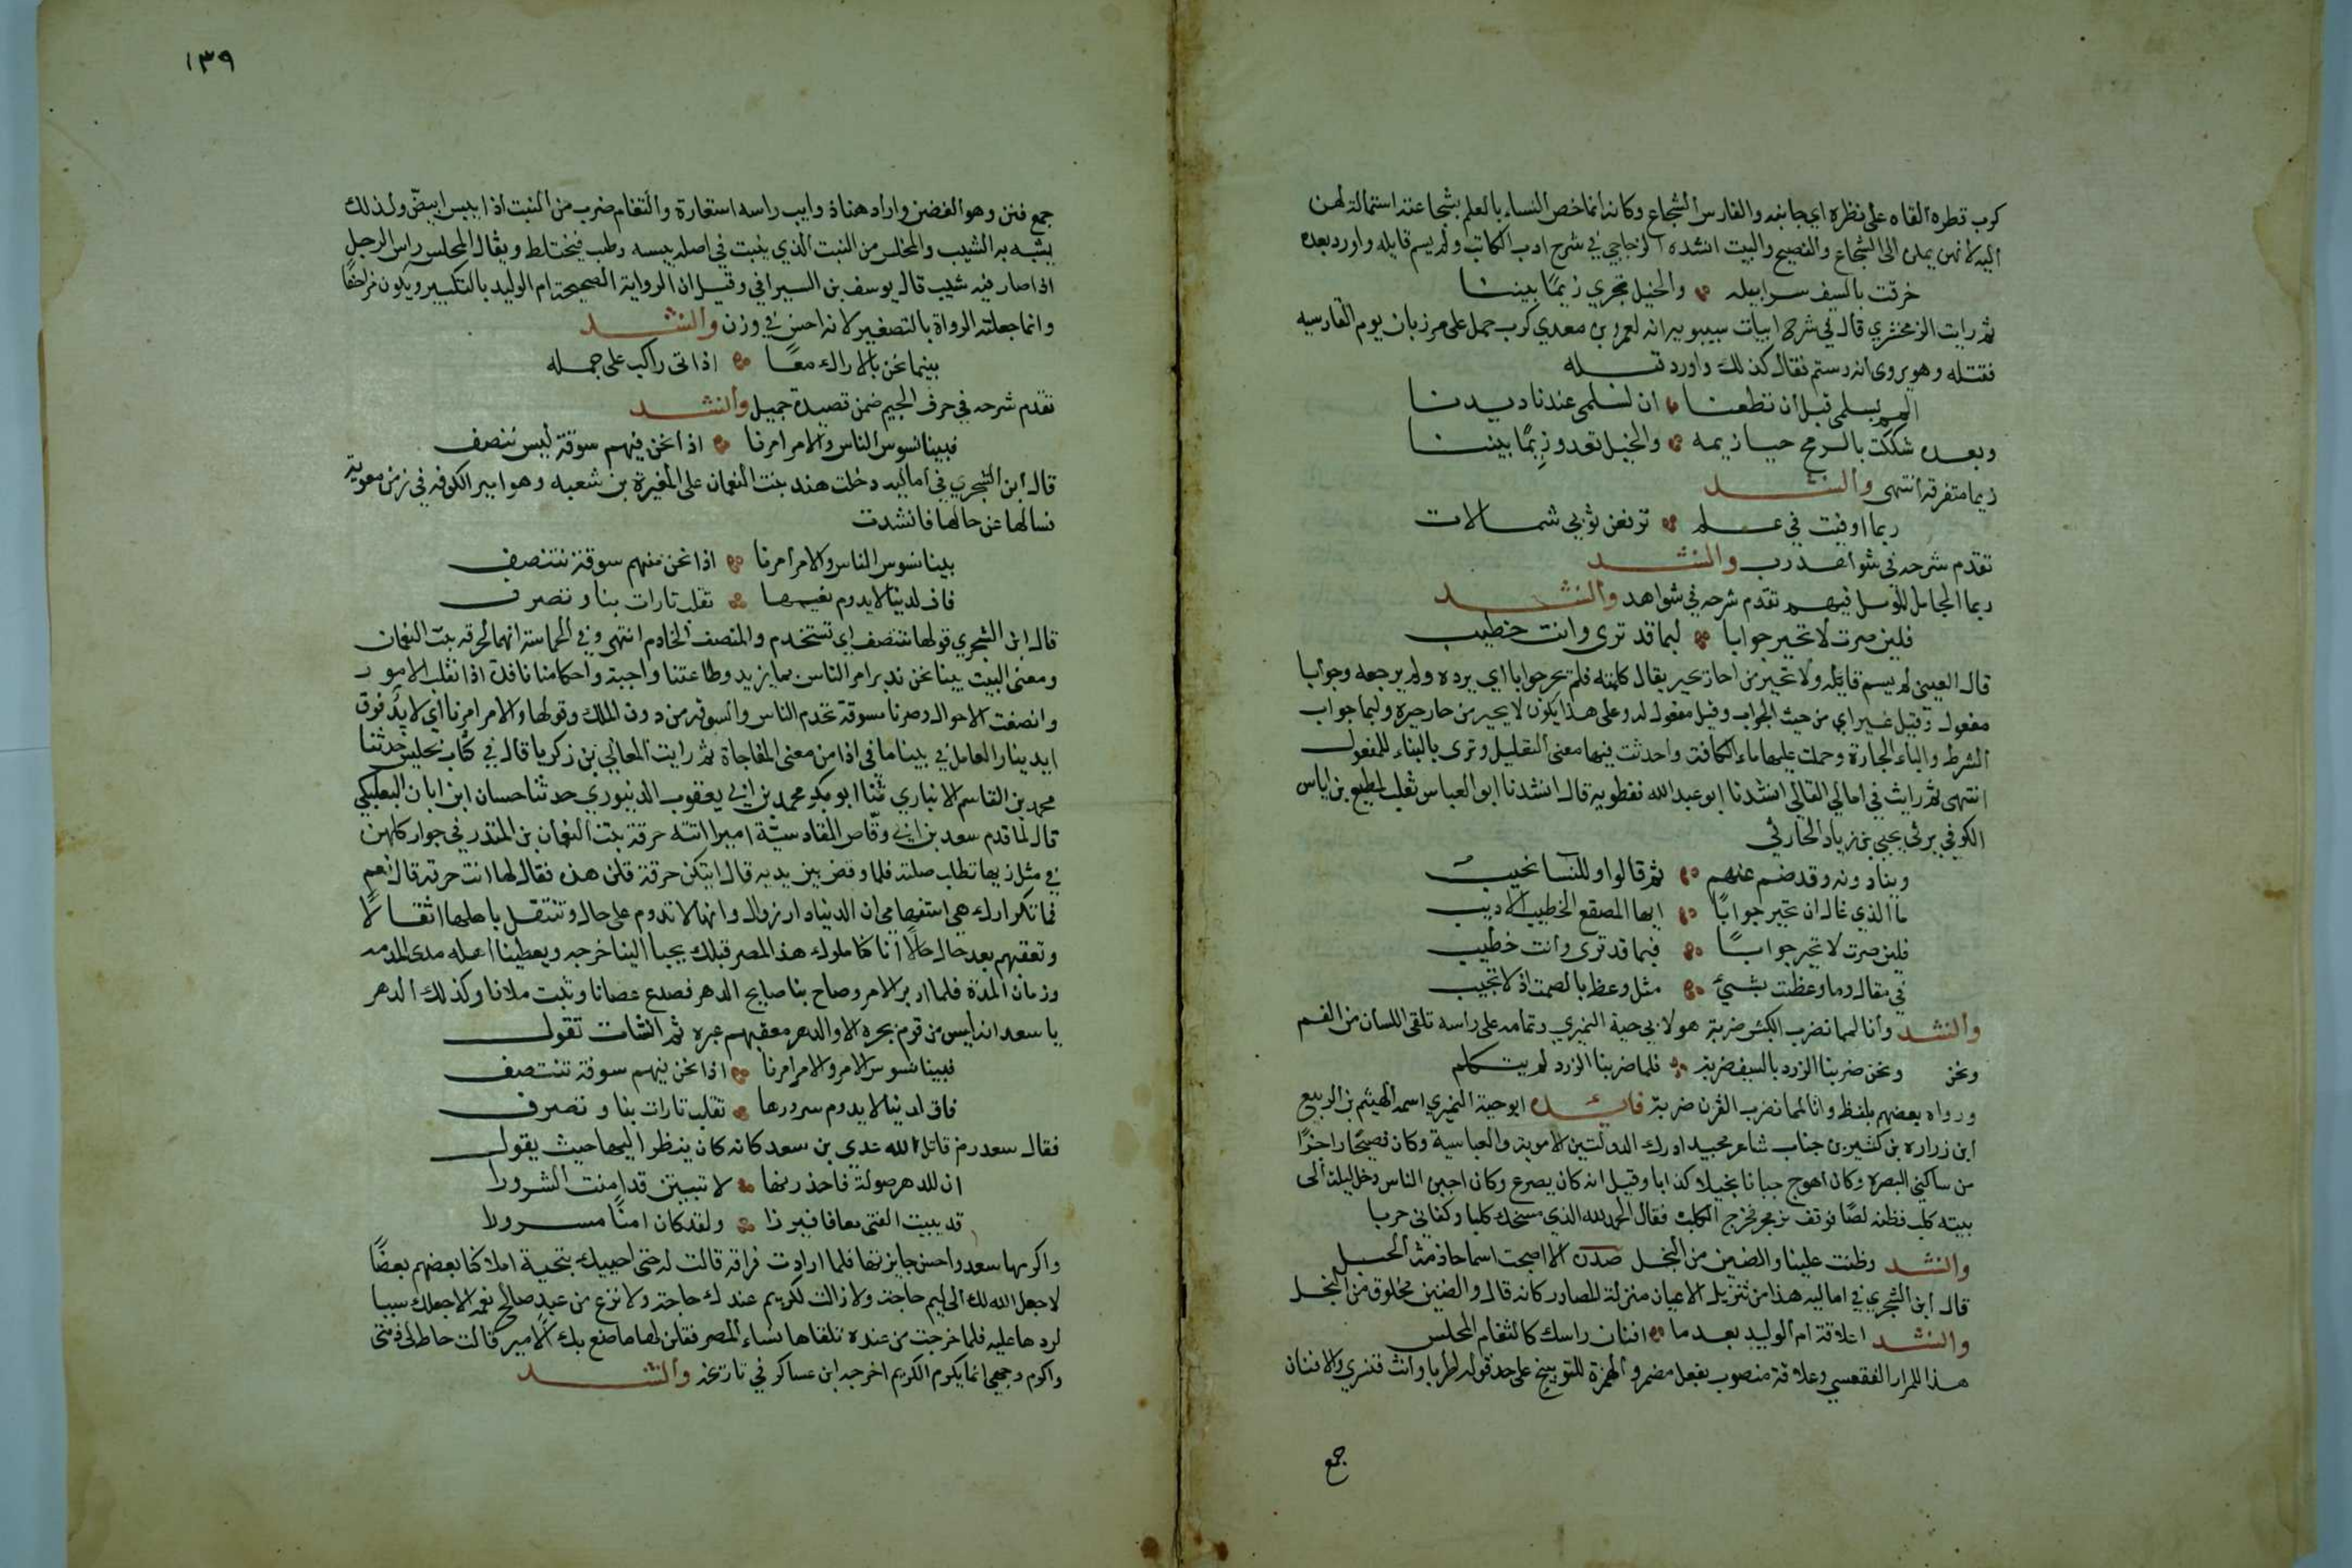 كرب قطره القاه على نظره اي جانبه والفارس الشجاع وكانه انما خص النساء بالعلم بشجاعته استمالة لهن
اليه لانهن يملن الى الشجاع والفصيح والبيت انشده الزجاجي في شرح ادب الكاتب ولم يسم قايله واورد بعده
خرقت بالسيف سرابيله والخيل تجري زيمًا بيننا
ثم رايت الزمخشري قال في شرح ابيات سيبويه انه لعمرو بن معدي كرب حمل على مرزبان يوم القادسيه
فقتله وهو يروى انه رستم فقال كذلك واورد قبله
المم بسلمى قبل ان تظعنا ان لسلمى عندنا ديدنا
وبعده شككت بالرمح حيازيمه والخيل تعدو زِيمًا بيننا
زيما متفرقة انتهى وانشد
ربما اوفيت في علم ترفعن ثوبي شمالات
تقدم شرحه في شواهد رب وانشد
ربما الجامل المؤبل فيهم تقدم شرحه في شواهد وانشد
فلين صرت لا تحير جوابا لبما قد ترى وانت خطيب
قال العيني لم يسم قايله ولا تحير من احار يحير يقال كلمته فلم يحر جوابا اي يرده ولم يرجعه وجوابا
مفعول وقيل تمييز اي من حيث الجواب وقيل مفعول له وعلى هذا يكون لا يحير من حار حيرة ولبما جواب
الشرط والباء الجارة وحملت عليها ما الكافة واحدثت فيها معنى التقليل وترى بالبناء للمفعول
انتهى ثم رايت في امالي القالي انشدنا ابو عبد الله نفطويه قال انشدنا ابو العباس ثعلب لمطيع بن اياس
الكوفي يرثي يحيى بن زياد الحارثي
وينادونه وقد صم عنهم ثم قالوا وللنسا نحيب
ما الذي غال ان تحير جوابًا ايها المصقع الخطيب الاديب
فلين صرت لا تحير جوابًا فبما قد ترى وانت خطيب
في مقال وما وعظت بشيء مثل وعظ بالصمت اذ لا تجيب
وانشد وانا لمما نضرب الكبش ضربة هو لابي حية النميري وتمامه على راسه تلقى اللسان من الفم
ونحن ونحن ضربنا الزرد بالسيف ضربة فلما ضربنا الزرد لم يتكلم
ورواه بعضهم بلفظ وانا لمما نضرب القرن ضربة فايده ابو حية النميري اسمه الهيثم بن الربيع
ابن زراره بن كثير بن جناب شاعر مجيد ادرك الدولتين الاموية والعباسية وكان فصيحًا راجزًا
من ساكني البصرة وكان اهوج جبانا بخيلا كذابا وقيل انه كان يصرع وكان اجبن الناس دخل ليلة الى
بيته كلب فظنه لصًا فوقف يزمجر فخرج الكلب فقال الحمد لله الذي مسخك كلبا وكفاني حربا
وانشد وظنت علينا والضنين من البخل صدره الا اصبحت اسما جاذمة الحبل
قال ابن الشجري في اماليه هذا من تنزيل الاعيان منزلة المصادر كانه قال والضنين مخلوق من البخل
وانشد اعلاقة ام الوليد بعد ما افنان راسك كالثغام المخلس
هذا للمرار الفقعسي وعلاقة منصوب بفعل مضمر والهمزة للتوبيخ على حد قوله اطربا وانت قنسري والافنان
جمع
١٣٩
جمع فنن وهو الغصن واراد هنا ذوايب راسه استعارة والثغام ضرب من النبت اذا يبس ابيضّ ولذلك
يشبه به الشيب والمخلس من النبت الذي ينبت في اصله يبسه رطب فيختلط ويقال المخلس راس الرجل
اذا صار فيه شيب قال يوسف بن السيرافي وقيل ان الرواية الصحيحة ام الوليد بالتكبير ويكون مزاحفًا
وانما جعلته الرواة بالتصغير لانه احسن في وزن وانشد
بينما نحن بالاراك معًا اذ اتى راكب على جمله
تقدم شرحه في حرف الجيم ضمن قصيدة جميل وانشد
فبينا نسوس الناس والامر امرنا اذا نحن فيهم سوقة ليس ننصف
قال ابن الشجري في اماليه دخلت هند بنت النعمان على المغيرة بن شعبه وهو امير الكوفه في زمن معوية
فسالها عن حالها فانشدت
بينا نسوس الناس والامر امرنا اذا نحن منهم سوقة نتنصف
فاف لدنيا لا يدوم نعيمها تقلب تارات بنا وتصرف
قال ابن الشجري قولها نتنصف اي نستخدم والمنصف الخادم انتهى وفي الحماسة انها لحرقه بنت النعمان
ومعنى البيت بينا نحن ندبر امر الناس بما يزيد وطاعتنا واجبة واحكامنا نافذة اذا انقلب الامور
وانصفت الاحوال وصرنا سوقة نخدم الناس والسوقه من دون الملك وقولها والامر امرنا اي لا يد فوق
ايدينا والعامل في بينا ما في اذا من معنى المفاجاة ثم رايت المعالي بن زكريا قال في كتاب الجليس حدثنا
محمد بن القاسم الانباري ثنا ابو بكر محمد بن ابي يعقوب الدينوري حدثنا حسان ابن ابان البعلبكي
قال لما قدم سعد بن ابي وقّاص القادسيّة اميرا اتته حرقة بنت النعمان بن المنذر في جوار كلهن
في مثل زيها تطلب صلته فلما وقفن بين يديه قال ايتكن حرقة قلن هذه فقال لها انت حرقة قال نعم
فما تكرارك هي استفهامي ان الدنيا دار زوال وانها لا تدوم على حال وتنتقل باهلها انتقالا
وتعقبهم بعد حال حالا انا كنا ملوك هذا المصر قبلك يجبا الينا خرجه ويعطينا اهله مدى المدة
وزمان المدة فلما ادبر الامر وصاح بنا صايح الدهر فصدع عصانا وشتت ملانا وكذلك الدهر
يا سعد انه ليس من قوم بحبرة الا والدهر معقبهم عبره ثم انشات تقول
فبينا نسوس الامر والامر امرنا اذا نحن فيهم سوقة نتنصف
فاف لدنيا لا يدوم سرورها تقلب تارات بنا وتصرف
فقال سعد رض قاتل الله عدي بن سعد كانه كان ينظر اليها حيث يقول
ان للدهر صولة فاحذرنها لا تبيتن قد امنت الشرورا
قد يبيت الفتى معافا فيرزا ولقد كان امنًا مسرورا
واكرمها سعد واحسن جايزتها فلما ارادت فراقه قالت له حتى احييك بتحية املاكنا بعضهم بعضًا
لا جعل الله لك الى ليم حاجة ولا زالت لكريم عندك حاجة ولا نزع من عبد صالح نعمة الا جعلك سببا
لردها عليه فلما خرجت من عنده تلقاها نساء المصر فقلن لها ما صنع بك الامير قالت حاط لي ذمتي
واكرم وجهي انما يكرم الكريم اخرجه ابن عساكر في تاريخه وانشد